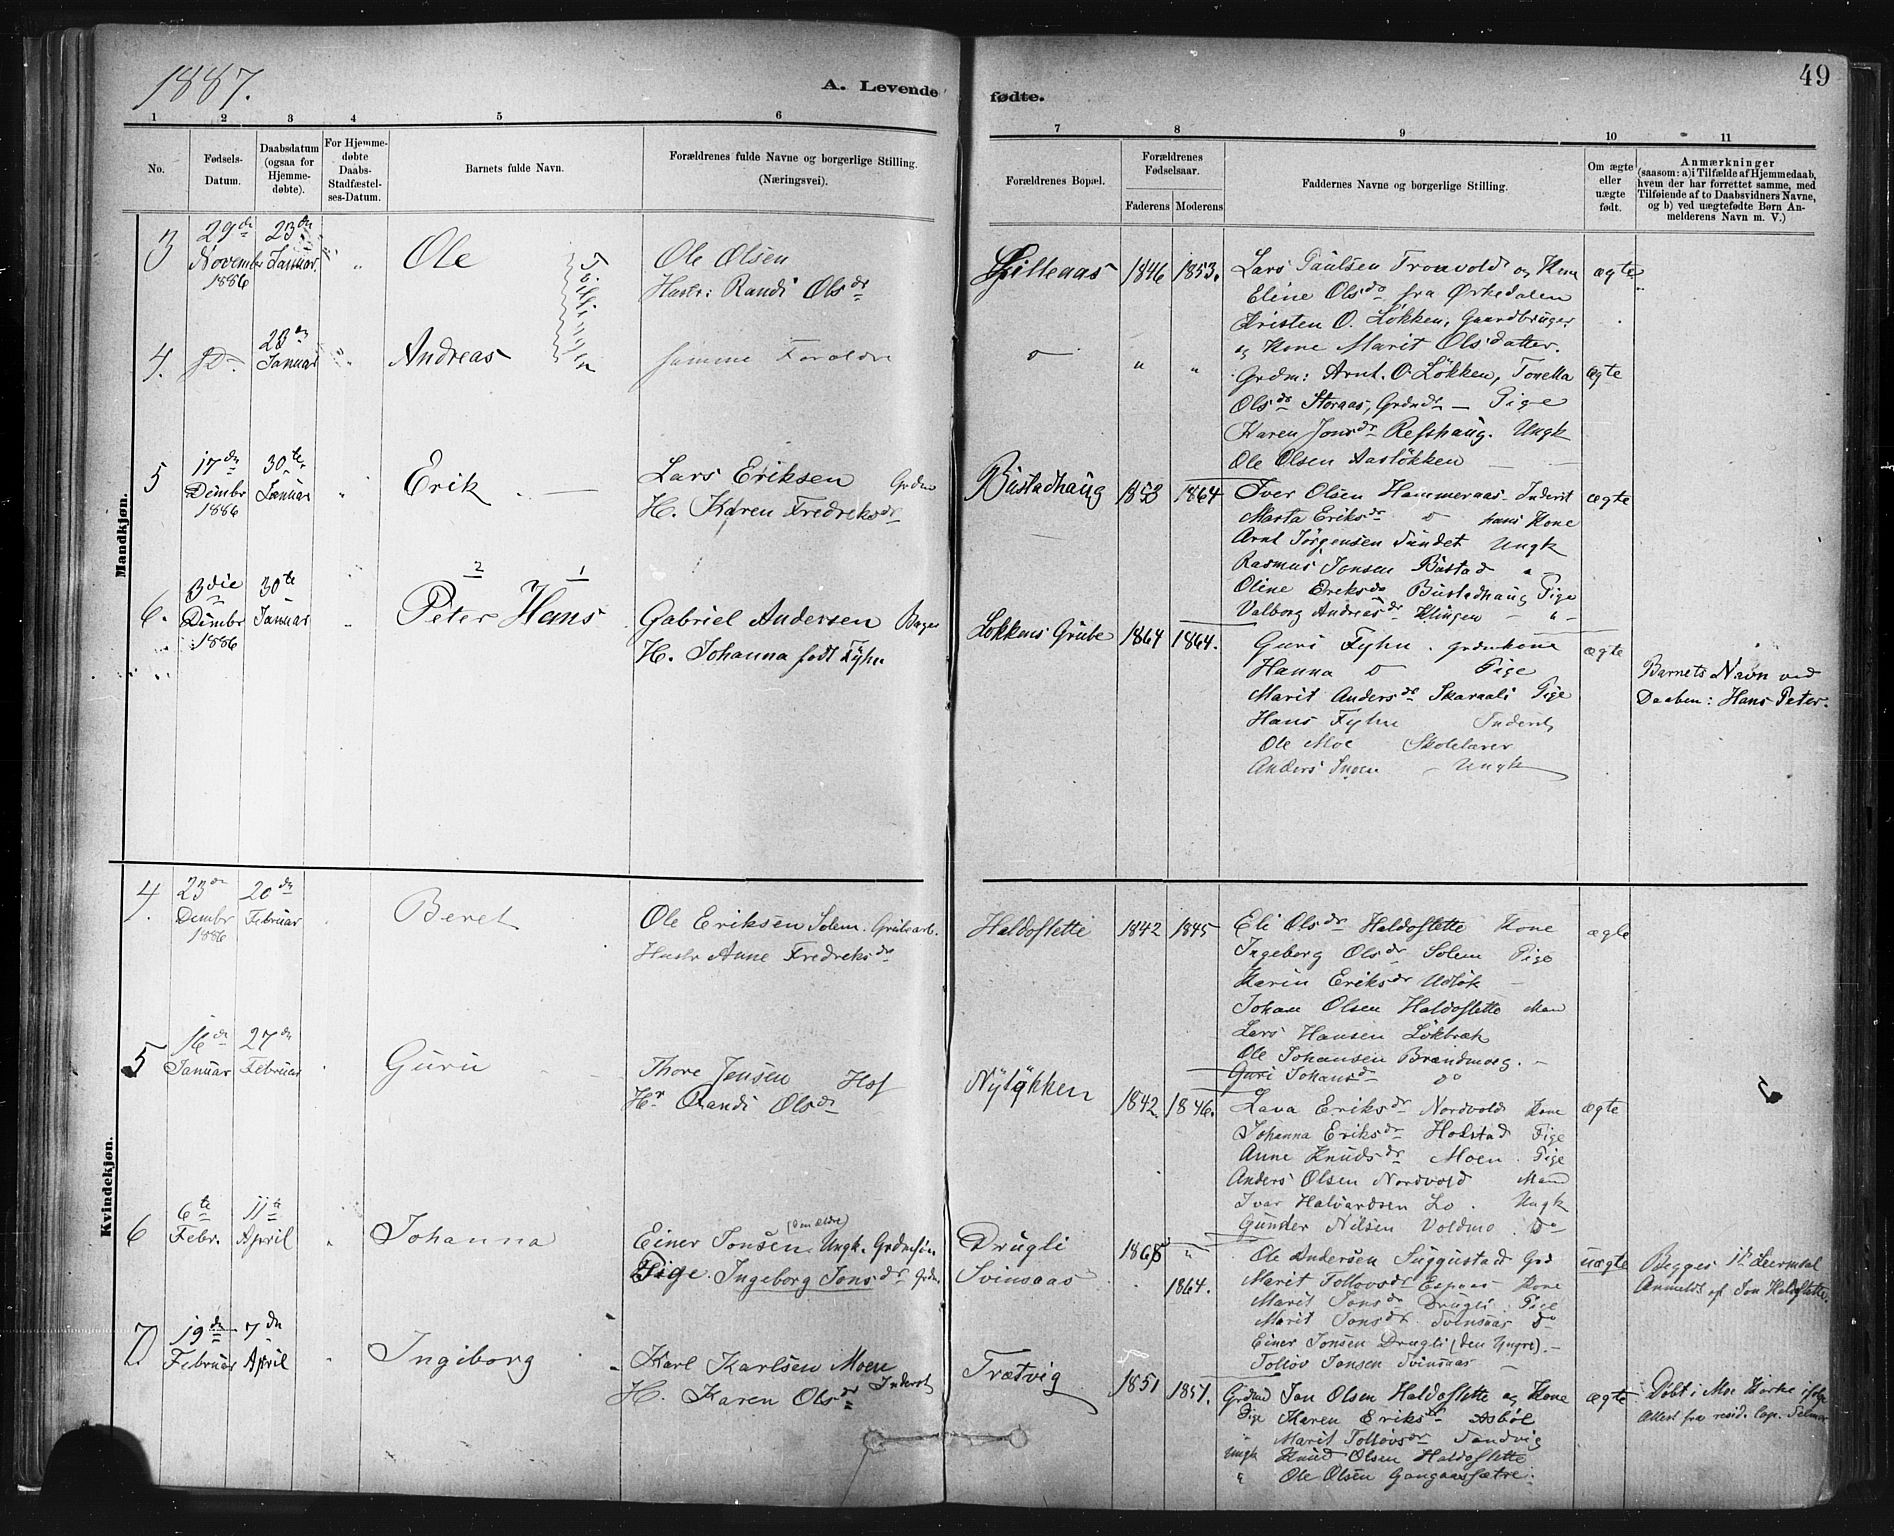 1887.
A. Levende
fødte.
49
1 2 3 4 5 6 7 8 9 10 11
No.
Fødsels-
Datum.
Daabsdatum
(ogsaa for
Hjemme-
døbte).
For Hjemme-
døbte
Daabs-
Stadfæstel-
ses-Datum.
Barnets fulde Navn.
Forældrenes fulde Navne og borgerlige Stilling.
(Næringsvei).
Forældrenes Bopæl.
Forældrenes
Fødselsaar.
Faderens Moderens
Faddernes Navne og borgerlige Stilling.
Om ægte
eller
uægte
født.
Anmærkninger
(saasom: a) i Tilfælde af Hjemmedaab,
hvem der har forrettet samme, med
Tilføiende af to Daabsvidners Navne,
og b) ved uægtefødte Børn An-
melderens Navn m. V.)
Mandkjøn.
3
29de
Novembr
1886
23de
Januar
Ole
Tvillinger
Ole Olsen
Hustr: Randi Olsdr
Lilleaas
1846 1853.
Lars Paulsen Tronvold og Kone
Eline Olsdr fra Ørkedalen
Kristen O. Løkken, Gaardbruger
og Kone Marit Olsdatter.
ægte
4.
Do
23de
Januar
Andreas
samme Forældre
Do
" "
Grdm: Arnt. O. Løkken, Tonetta
Olsdr Storaas, Grdmdr — Pige
Karen Jonsdr Refshaug. Ungk
Ole Olsen Aasløkken
ægte
5
17de
Dcmbr
1886
30te
Januar
Erik
Lars Eriksen Grdm
H. Karen Fredreksdr
Bustadhaug
1853 1864
Iver Olsen Hammeraas Inderst
Marta Eriksdr Do hans Kone
Arnt Jørgensen Sundet Ungk
Rasmus Jonsen Bustad "
Oline Eriksdr Bustadhaug Pige
Valborg Andreasdr Klingen "
ægte
6.
3die
Dcmbr
1886
30te
Januar
2 1
Peter Hans
Gabriel Andersen Bager
H. Johanna født Fyhn
Løkkens Grube
1864 1864.
Guri Fyhn. grdmkone
Hanna Do Pige
Marit Andersdr Skaraali Pige
Hans Fyhn Inderst
Ole Moe Skolelærer
Anders Snoen Ungk
ægte
Barnets Navn ved
Daaben: Hans Peter.
Kvindekjøn.
4.
23de
Dcmbr
1886
20de
Februar
Beret
Ole Eriksen Solem. Grubearb.
Hustr Anne Fredreksdr
Haldoslette
1842 1845
Eli Olsdr Haldoslette Kone
Ingeborg Olsdr Solem Pige
Karin Eriksdr Utløk
Johan Olsen Haldoslette Man
Lars Hansen Løkbræk
Ole Johansen Brandmoeg.
Guri Johansdr Do
ægte
5
16de
Januar
27de
Februar
Guru
Thore Jensen Hof
Hr Randi Olsdr
Nyløkken
1842 1846.
Lava Eriksdr Nordvold Kone
Johanna Eriksdr Hodstad Pige
Anne Knudsdr Moen. Pige
Anders Olsen Nordvold Mand
Ivar Halvardsen Lo. Ungk
Gunder Nilsen Voldmo. Do
ægte
6
6te
Febr.
11te
April
Johanna
Einer Jonsen (den ældre) Ungk. Grdmsøn
Pige. Ingeborg Jonsdr Grdm
Drugli
Svinsaas
1865 "
1864.
Ole Andersen Suggustad Grd
Marit Tollovsdr Espaas Kone
Marit Jonsdr Drugli. Pige
Marit Jonsdr Svinsaas Do
Einer Jonsen Drugli (den yngre).
Tollov Jonsen Svinsaas
uægte
Begges 1ste Leiermaal
Anmeldt af Jon Haldoslette.
7
19de
Februar
7de
April
Ingeborg
Karl Karlsen Moen
H. Karen Olsdr Inderst
Trætvig
1851 1851.
Grdmd Jon Olsen Haldoslette og Kone
Pige Karen Eriksdr Asbøl
" Marit Tollovsdr Sandvig
Ungk Knud Olsen Haldoslette
" Ole Olsen Gangaassætre.
ægte
Døbt i Moe Kirke ifølge
Attest fra resid. Cap.